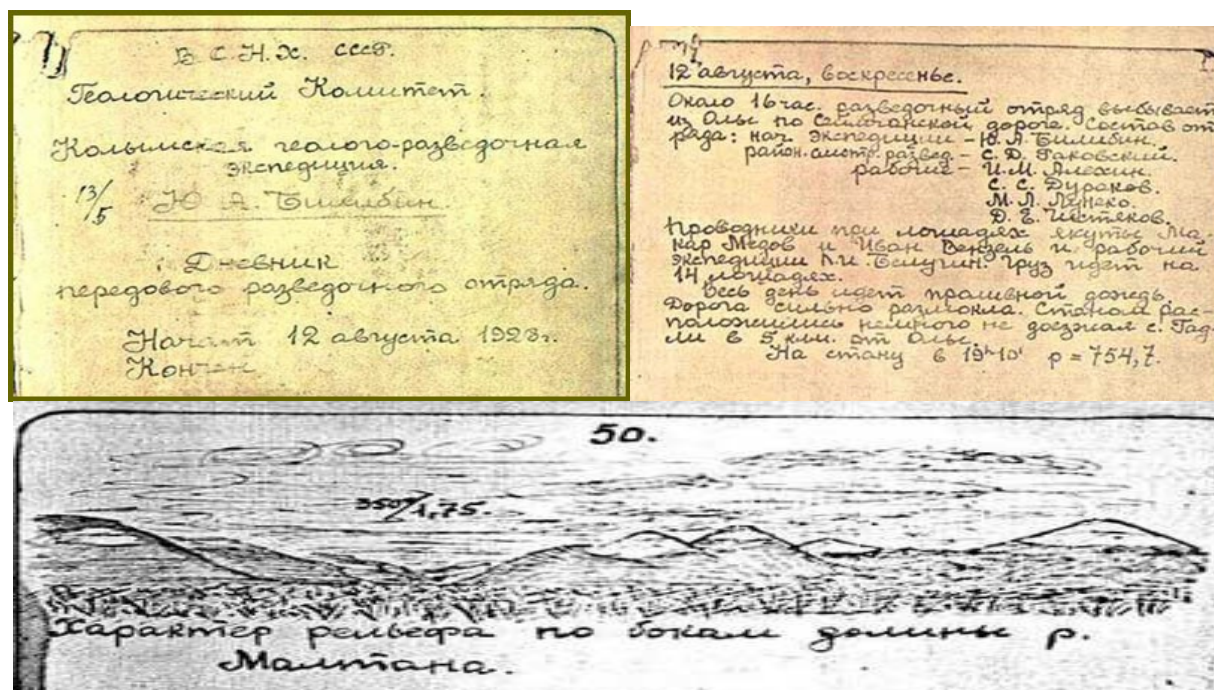 В. С. Н. Х. СССР.
Геологический Комитет.
Колымская геолого-разведочная
экспедиция.
13/5
Ю. А. Билибин.
Дневник
передового разведочного отряда.
Начат 12 августа 1928 г.
Кончен
12 августа, воскресенье.
Около 16 час. разведочный отряд выбывает
из Олы по Сеймчанской дороге. Состав от
ряда: нач. экспедиции – Ю. А. Билибин.
район. смотр. развед – С. Д. Раковский.
рабочие – И. М. Алехин.
С. С. Дураков.
М. Л. Лунеко.
Д. Е. Чистяков.
Проводники при лошадях якуты Ма-
кар Медов и Иван Вензель и рабочий
экспедиции П. И. Белугин. Груз идет на
14 лошадях.
Весь день идет проливной дождь.
Дорога сильно размокла. Станом рас-
положились немного не доезжая с. Гад-
ли в 5 клм. от Олы.
На стану в 19ч10' p = 754,7.
50.
350/1,75.
Характер рельефа по бокам долины р.
Малтана.